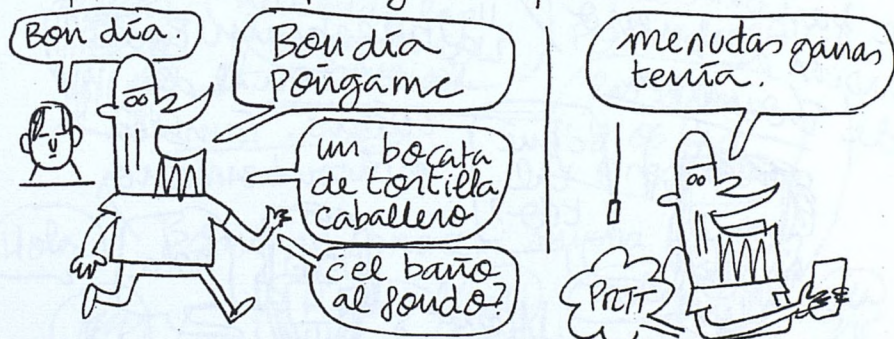 Bon día.
Bon día
Poñgame
un bocata
de tortilla
caballero
¿el baño
al fondo?
menudas ganas
tenía.
PRTT